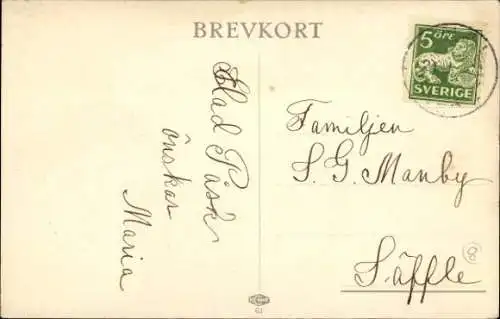 BREVKORT
5 ÖRE
SVERIGE
Glad Påsk
önskar
Maria
Familjen
S. G. Manby
Säffle